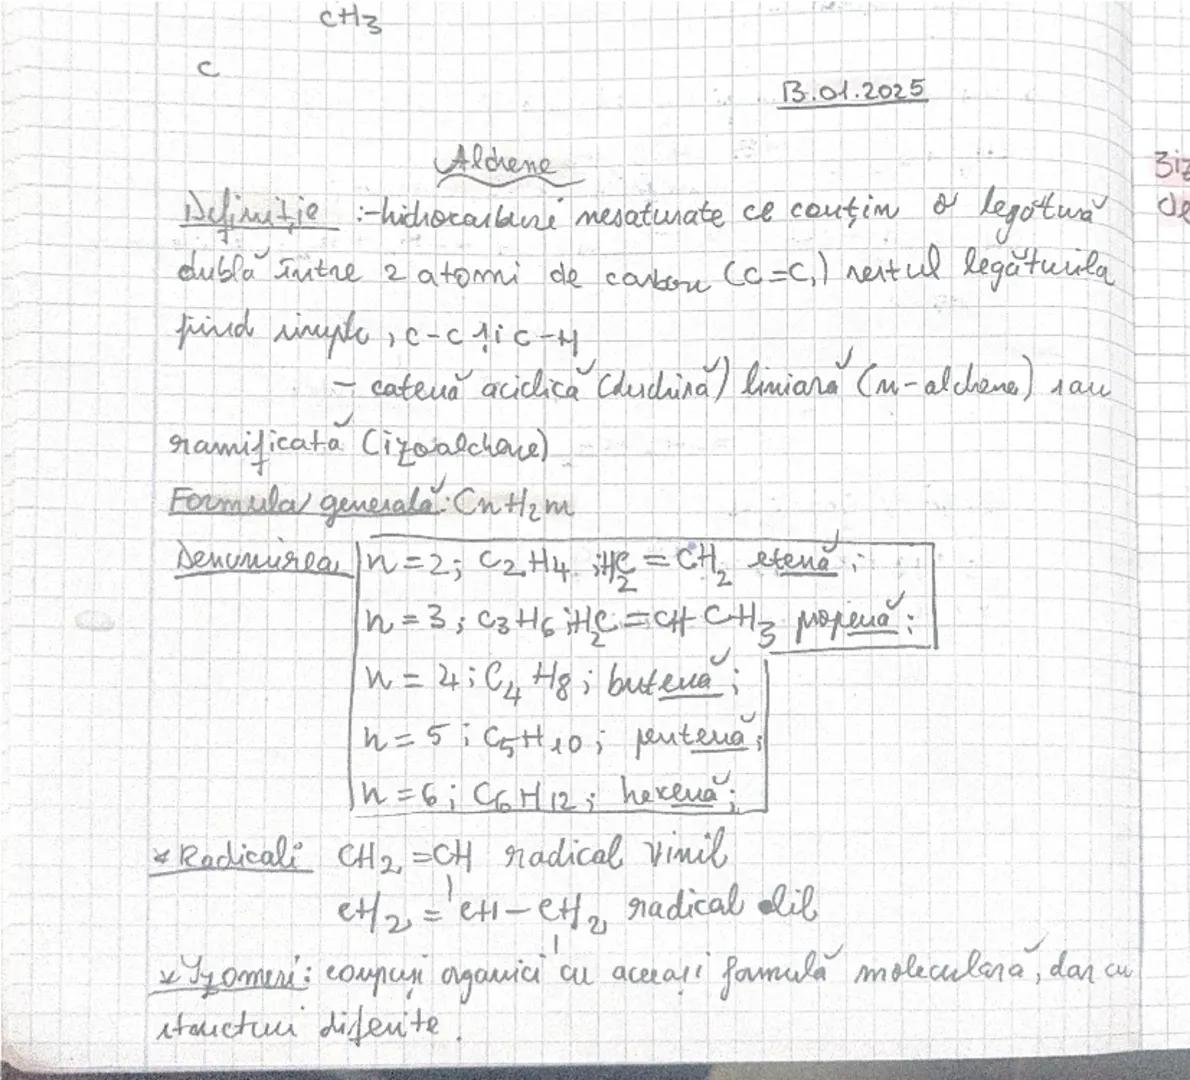 CH3
C
13.01.2025
Alchene
Definiție :-hidrocarburi nesaturate ce conțin o legătură
dublă între 2 atomi de carbon (C=C,) restul legăturila
fiind simple, C-C și C-H
- catenă aciclică (deschisă) liniară (n-alchene) sau
ramificată (izoalchene)
Formula generală: CnH2n
Denumirea n=2; C2H4 ;H2C=CH2 etenă;
n=3; C3H6;H2C=CH CH3 propenă;
n=4; C4H8; butenă;
n=5; C5H10; pentenă;
n=6; C6H12; hexenă;
* Radicali CH2=CH radical vinil
CH2=CH-CH2 radical alil
* Izomeri: compuși organici cu aceeași formulă moleculară, dar cu
structuri diferite.